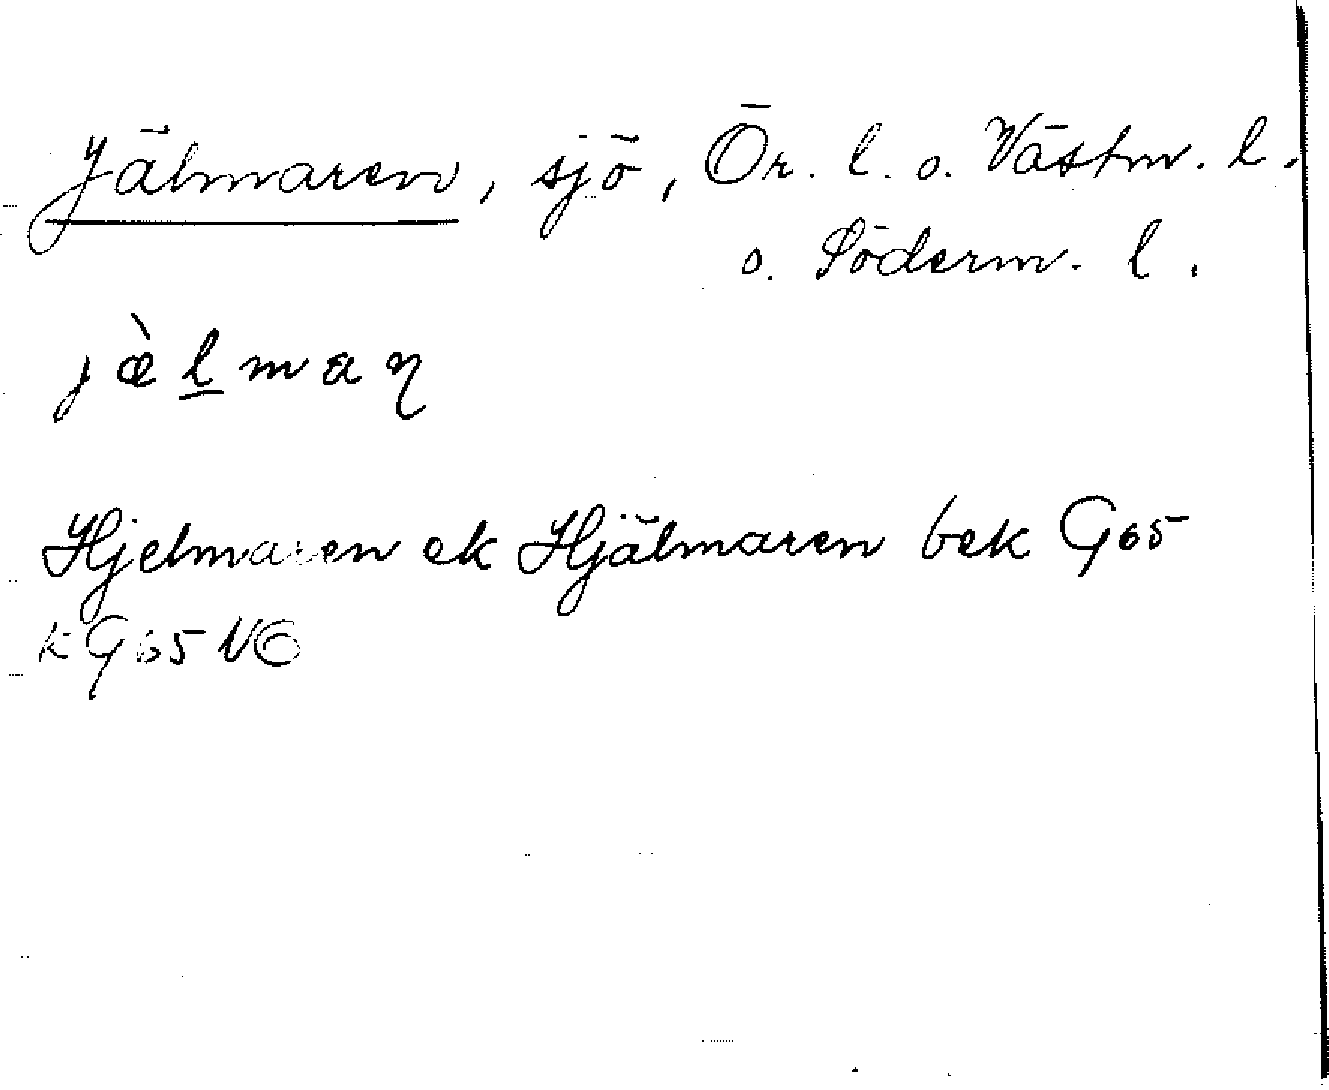 Jälmaren, sjö, Ör. l. o. Västm. l.
o. Söderm. l.
jæ̀l̲maɳ
Hjelmaren ek Hjälmaren bek G65
k G65 NÖ